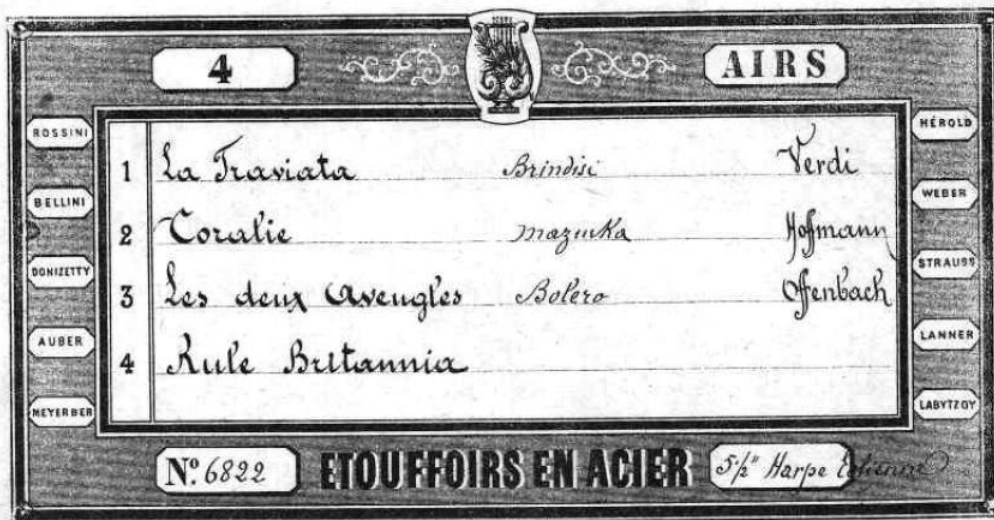 4 AIRS
ROSSINI
BELLINI
DONIZETTY
AUBER
MEYERBER
1 La Traviata Brindisi Verdi
2 Coralie mazurka Hofmann
3 Les deux Aveugles Bolero Offenbach
4 Rule Brittannia
HÉROLD
WEBER
STRAUSS
LANNER
LABYTZGY
Nº 6822 ETOUFFOIRS EN ACIER 5½" Harpe Eolienne